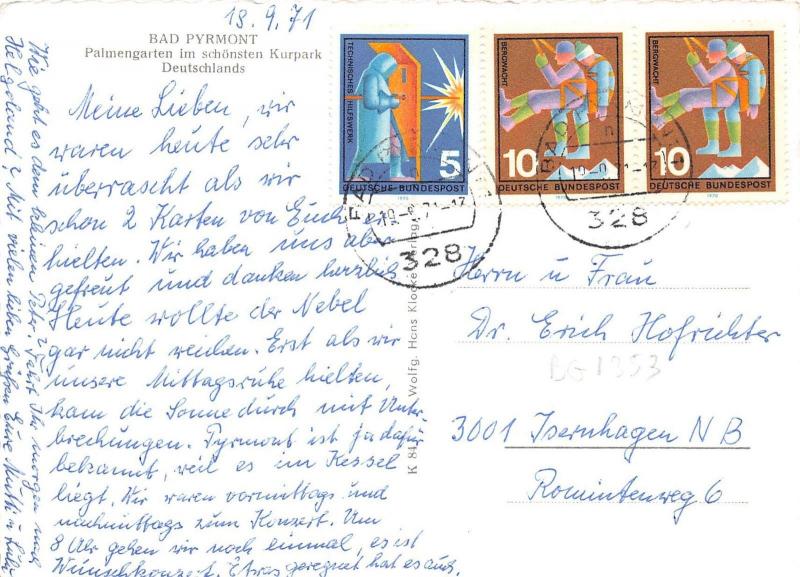 18.9.71
BAD PYRMONT
Palmengarten im schönsten Kurpark
Deutschlands
Meine Lieben, wir
waren heute sehr
überrascht als wir
schon 2 Karten von Euch er-
hielten. Wir haben uns aber
gefreut und danken herzlich
Heute wollte der Nebel
gar nicht weichen. Erst als wir
unsere Mittagsruhe hielten,
kam die Sonne durch mit Unter-
brechungen. Pyrmont ist ja dafür
bekannt, weil es im Kessel
liegt. Wir waren vormittags und
nachmittags zum Konzert. Um
8 Uhr gehen wir noch einmal, es ist
Wunschkonzert. Etwas geregnet hat es auch.
Wie geht es dem kleinen Peter? Fahrt Ihr morgen nach
Helgoland? Mit vielen lieben Grüßen Eure Mutti u.
TECHNISCHES HILFSWERK
5
DEUTSCHE BUNDESPOST
1970
BERGWACHT
10
DEUTSCHE BUNDESPOST
1970
BERGWACHT
10
DEUTSCHE BUNDESPOST
1970
BAD
328
BAD
328
K 84
Wolfg. Hans Klocke Verlag
Herrn u Frau
Dr. Erich Hofrichter
BG1353
3001 Isernhagen NB
Romintenweg 6